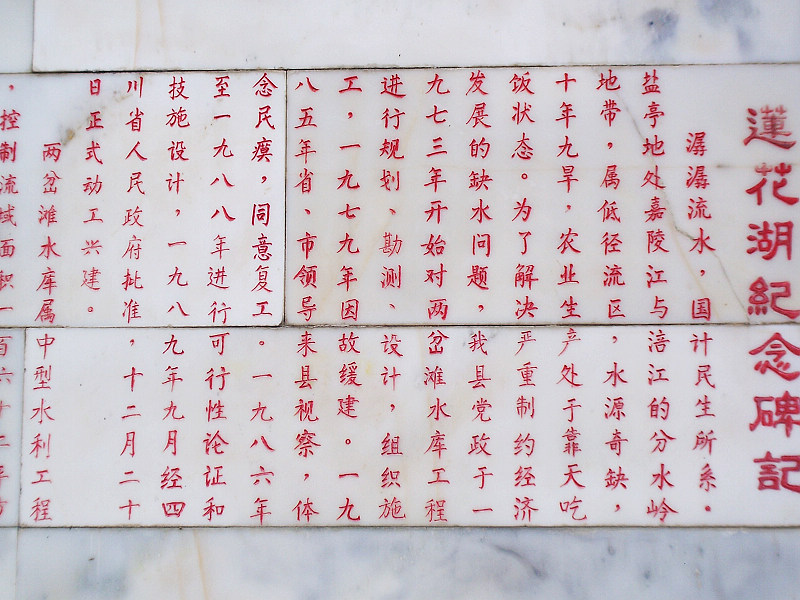 蓮花湖紀念碑記
潺潺流水，国计民生所系。
盐亭地处嘉陵江与涪江的分水岭
地带，属低径流区，水源奇缺，
十年九旱，农业生产处于靠天吃
饭状态。为了解决严重制约经济
发展的缺水问题，我县党政于一
九七三年开始对两岔滩水库工程
进行规划、勘测、设计，组织施
工，一九七九年因故缓建。一九
八五年省、市领导来县视察，体
念民瘼，同意复工。一九八六年
至一九八八年进行可行性论证和
技施设计，一九八九年九月经四
川省人民政府批准，十二月二十
日正式动工兴建。
两岔滩水库属中型水利工程
，控制流域面积一百六十二平方